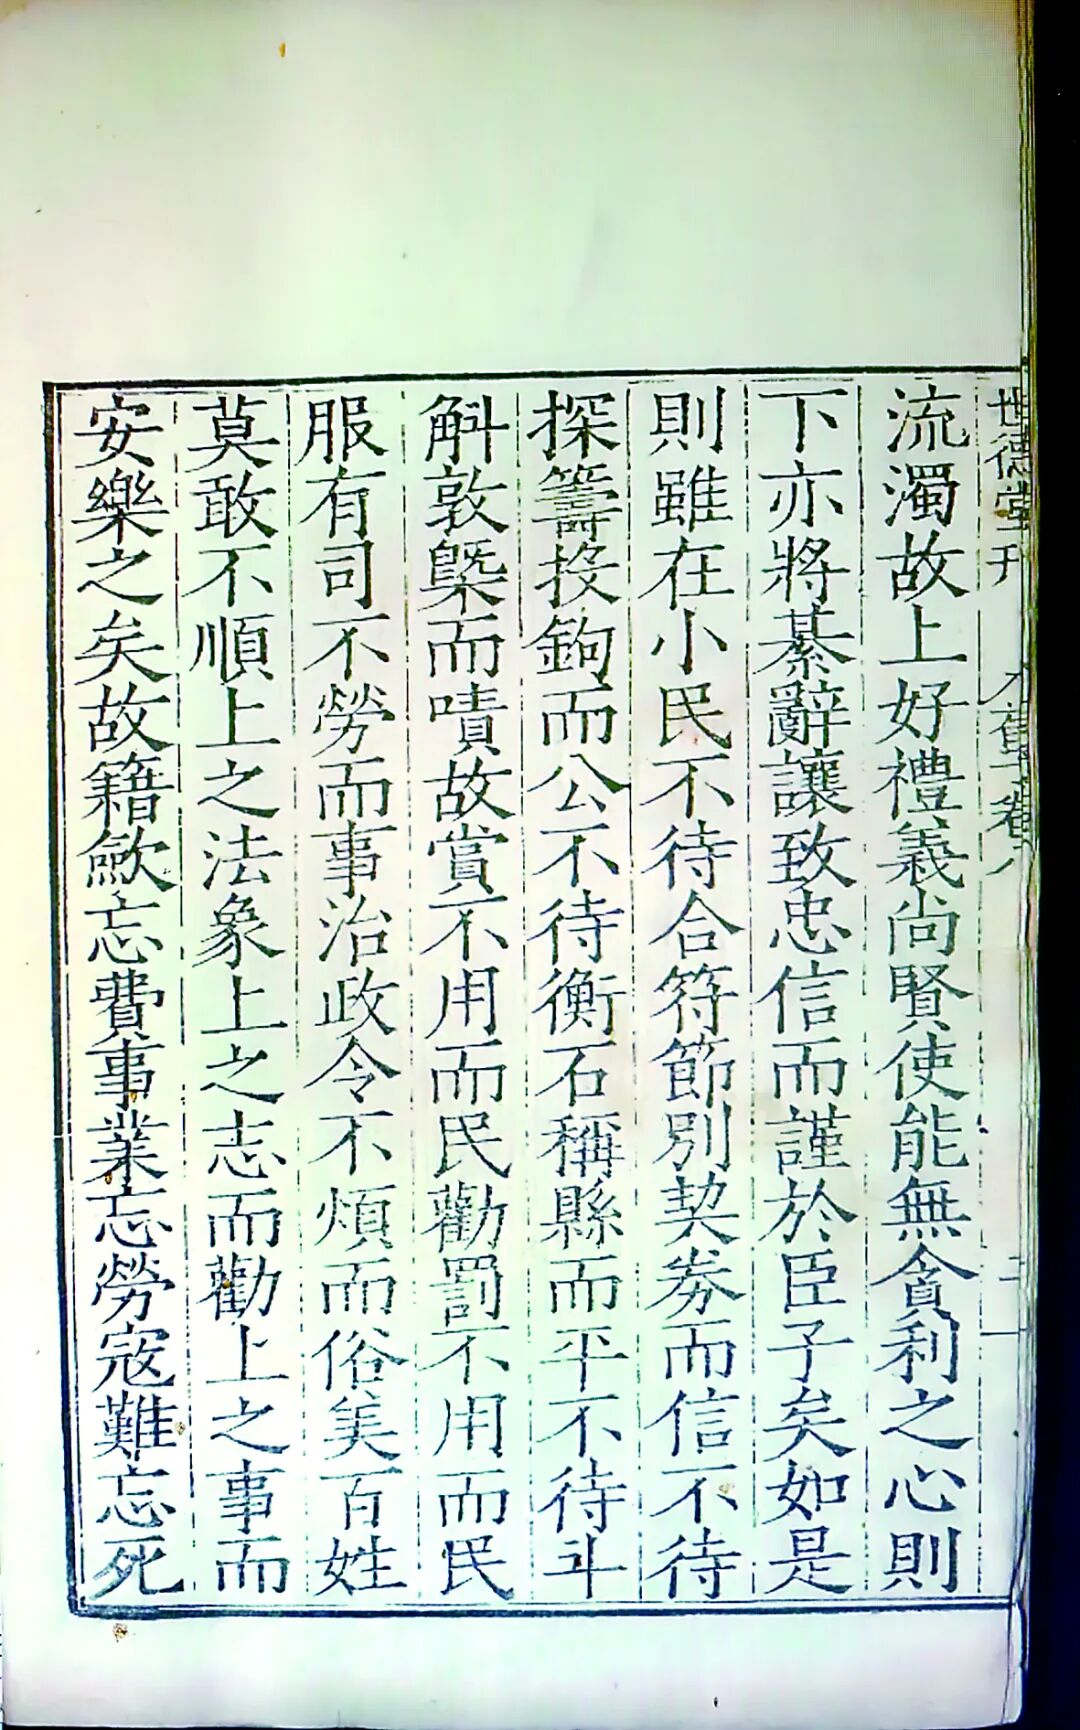 世德堂刊
流濁故上好禮義尚賢使能無貪利之心則
下亦將綦辭讓致忠信而謹於臣子矣如是
則雖在小民不待合符節別契券而信不待
探籌投鉤而公不待衡石稱縣而平不待斗
斛敦槩而嘖故賞不用而民勸罰不用而民
服有司不勞而事治政令不煩而俗美百姓
莫敢不順上之法象上之志而勸上之事而
安樂之矣故籍歛忘費事業忘勞寇難忘死